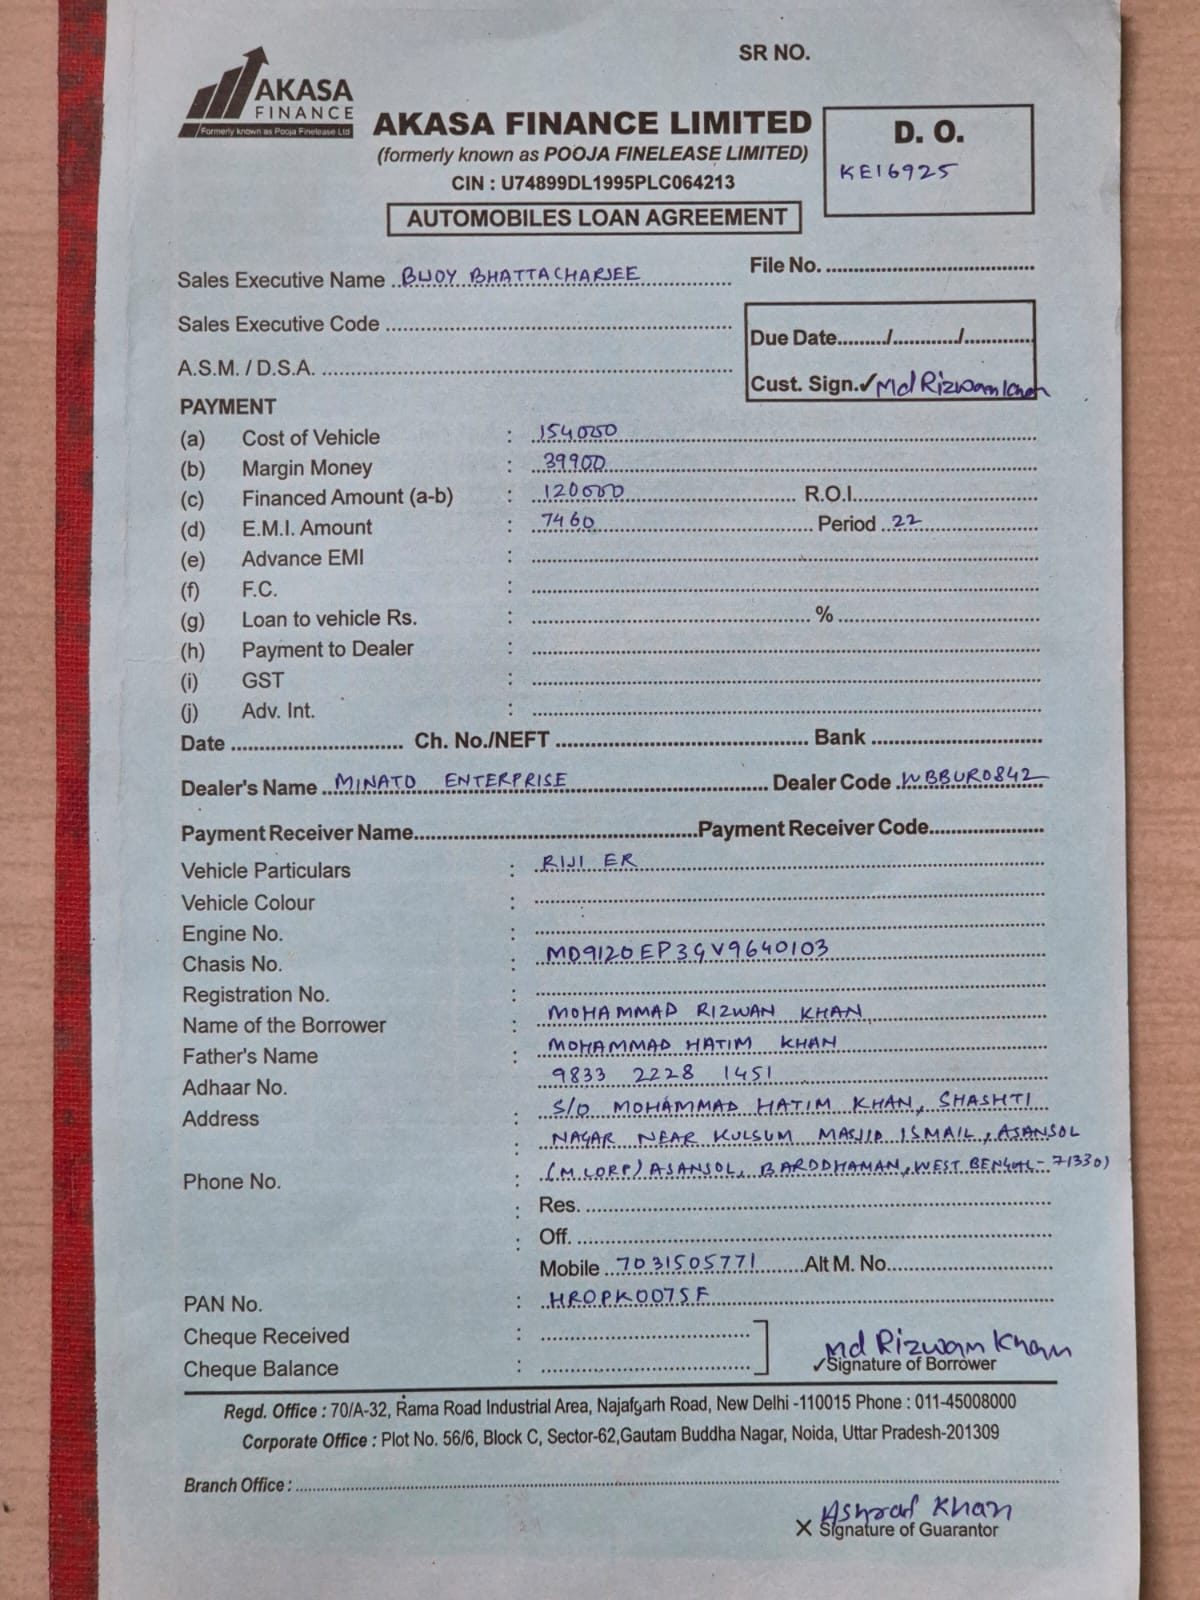 SR NO.
AKASA
FINANCE
Formerly known as Pooja Finelease Ltd
AKASA FINANCE LIMITED
(formerly known as POOJA FINELEASE LIMITED)
CIN : U74899DL1995PLC064213
AUTOMOBILES LOAN AGREEMENT
D. O.
KE16925
Sales Executive Name BIJOY BHATTACHARJEE
File No.
Sales Executive Code
A.S.M. / D.S.A.
Due Date......../............/............
Cust. Sign.✓ Md Rizwan Khan
PAYMENT
(a) Cost of Vehicle : 154000
(b) Margin Money : 39900
(c) Financed Amount (a-b) : 120000 R.O.I.
(d) E.M.I. Amount : 7460 Period 22
(e) Advance EMI :
(f) F.C. :
(g) Loan to vehicle Rs. : %
(h) Payment to Dealer :
(i) GST :
(j) Adv. Int. :
Date Ch. No./NEFT Bank
Dealer's Name MINATO ENTERPRISE Dealer Code WBBUR0842
Payment Receiver Name Payment Receiver Code
Vehicle Particulars : RIJI ER
Vehicle Colour :
Engine No. :
Chasis No. : MD9120EP3GV9640103
Registration No. :
Name of the Borrower : MOHAMMAD RIZWAN KHAN
Father's Name : MOHAMMAD HATIM KHAN
Adhaar No. 9833 2228 1451
Address : S/O MOHAMMAD HATIM KHAN, SHASHTI
: NAGAR NEAR KULSUM MASJID ISMAIL, ASANSOL
Phone No. : (M.CORP) ASANSOL, BARDDHAMAN, WEST BENGAL - 713301
: Res.
: Off.
Mobile 7031505771 Alt M. No.
PAN No. : HROPK0075F
Cheque Received :
Cheque Balance :
Md Rizwan Khan
✓Signature of Borrower
Regd. Office : 70/A-32, Rama Road Industrial Area, Najafgarh Road, New Delhi -110015 Phone : 011-45008000
Corporate Office : Plot No. 56/6, Block C, Sector-62,Gautam Buddha Nagar, Noida, Uttar Pradesh-201309
Branch Office :
Ashraf Khan
X Signature of Guarantor